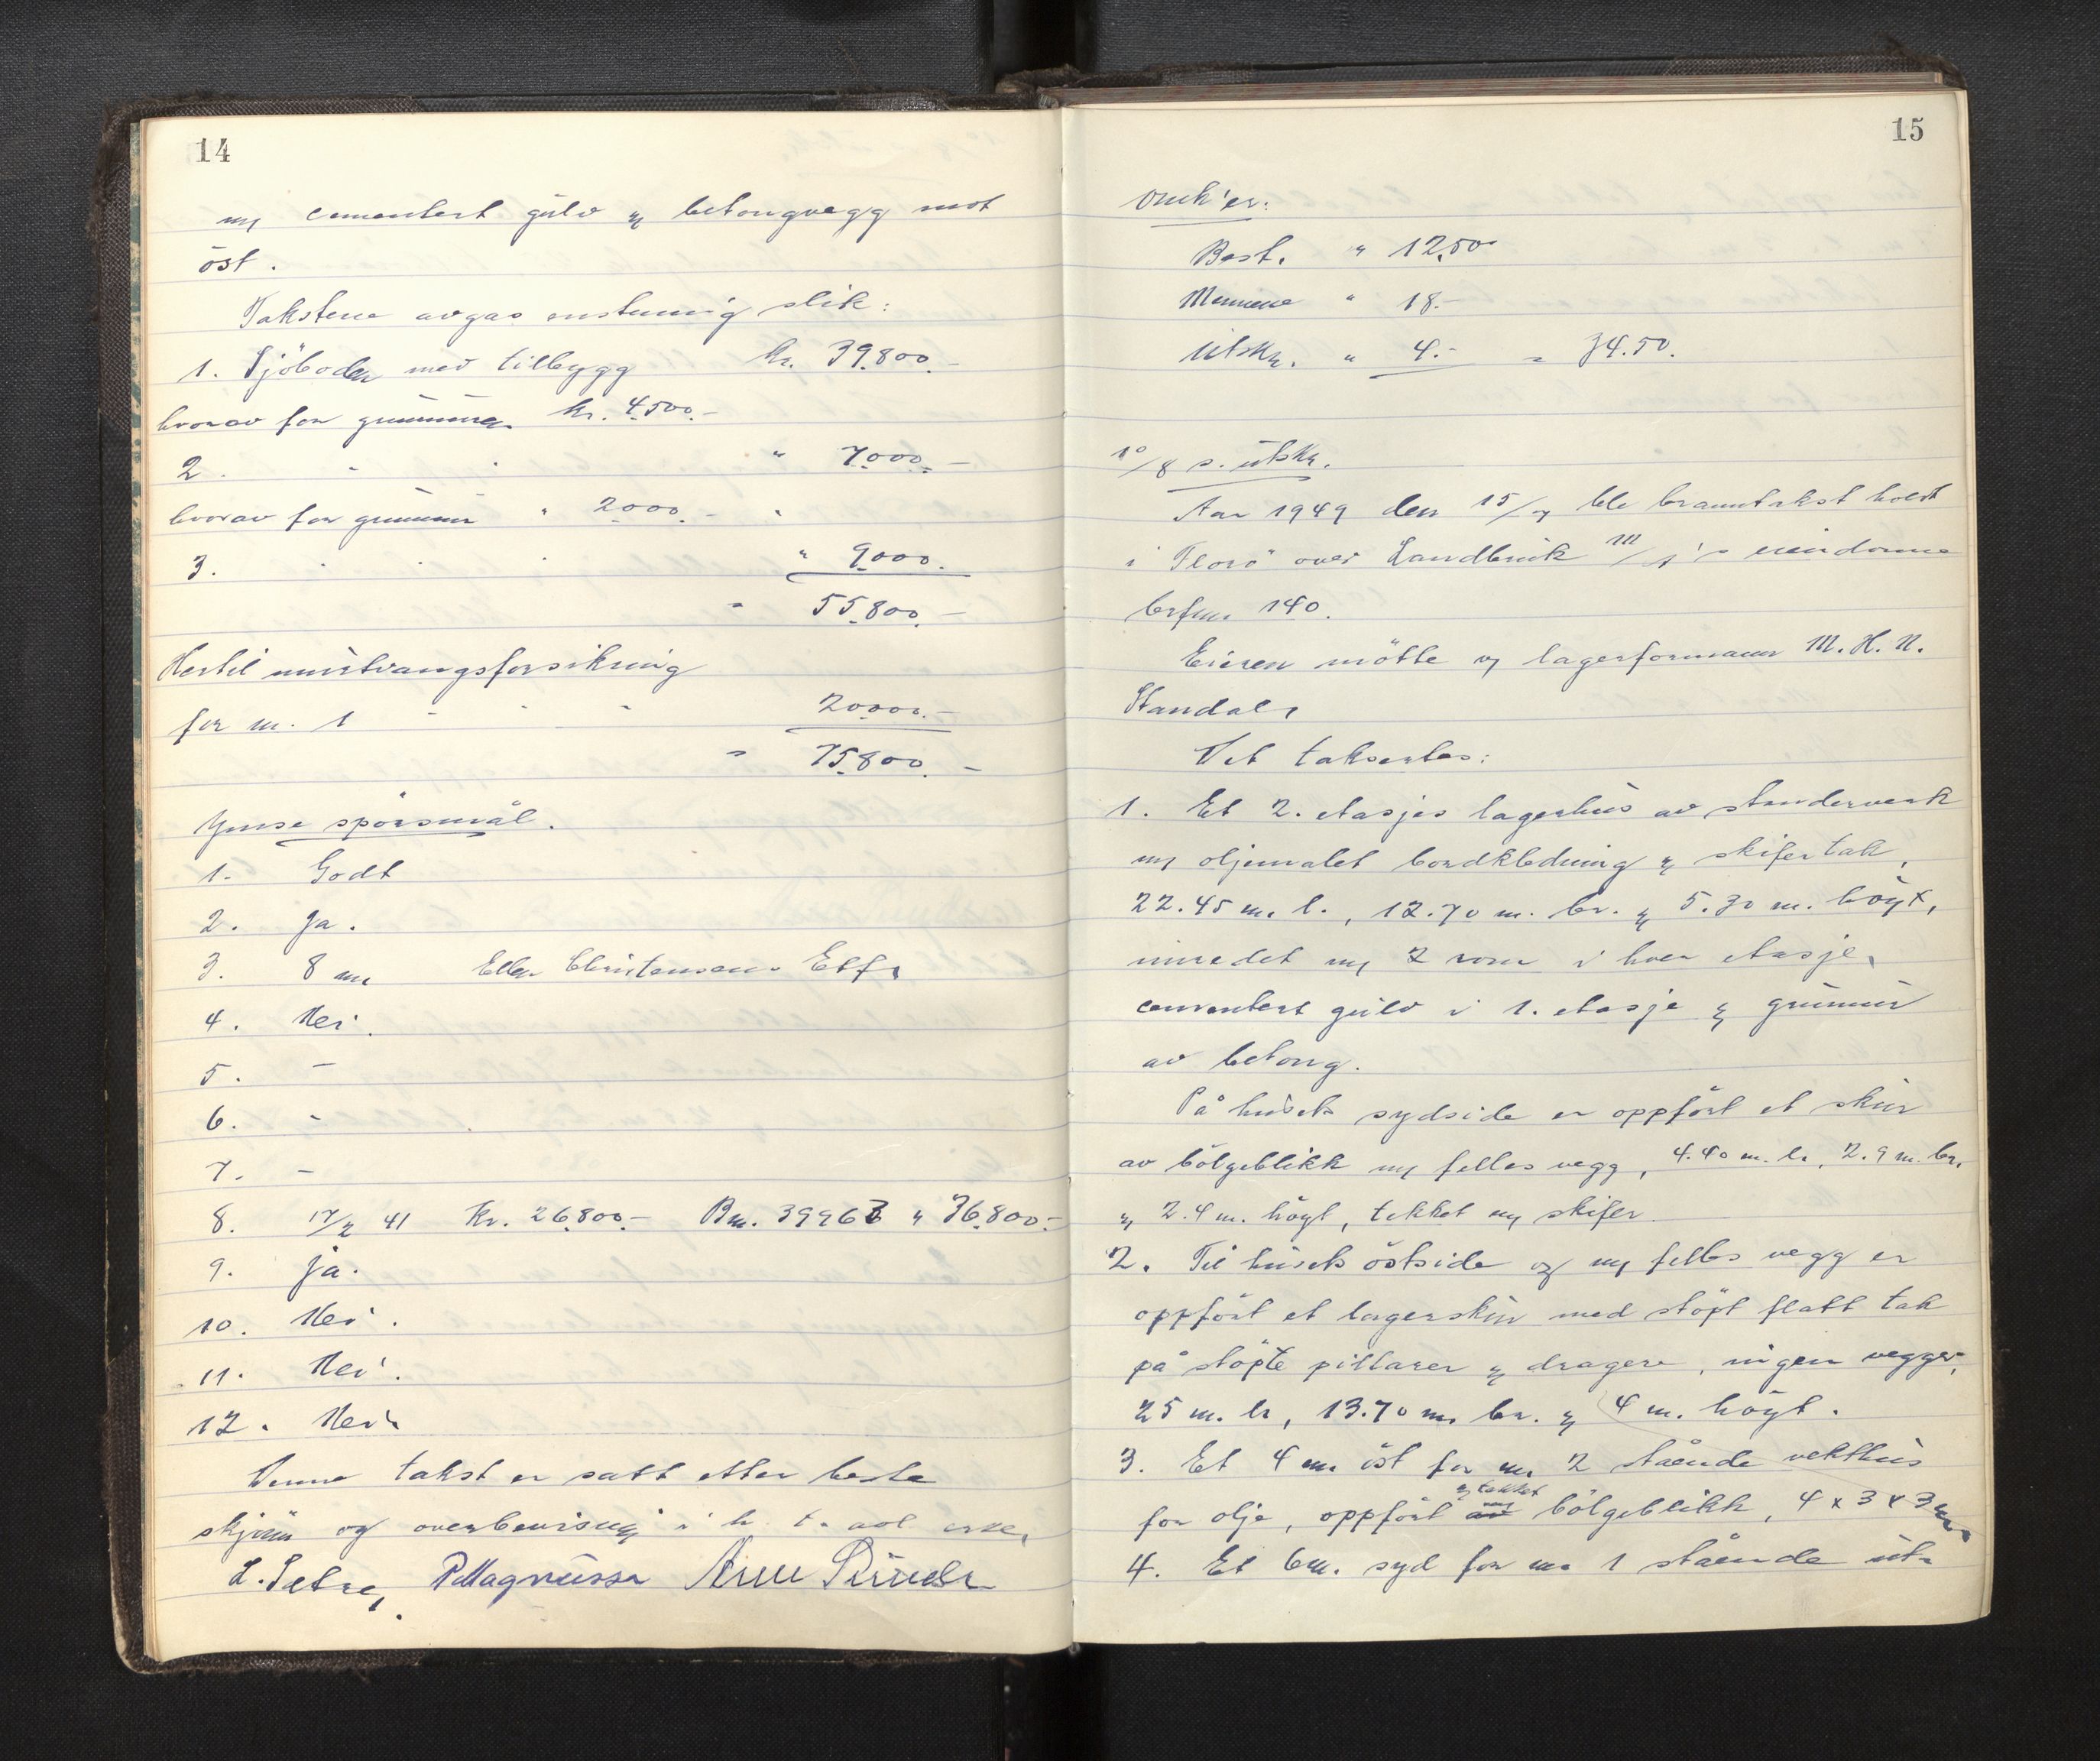 14
m/ cementert gulv & betongvegg mot
öst.
Takstene avgas enstemmig slik:
1. Sjöboden med tilbygg kr. 39.800.-
hvorav for grunnmur kr. 4.500.-
2. " " " 7.000.-
hvorav for grunnmur " 2000.- "
3. " " " " 9.000.
" 55.800.-
Hertil
for nr. 1 - - - 20000.-
= 75.800.-
Ymse spörsmål.
1. Godt
2. Ja.
3. 8 m. Ellen Christensens Eftf.
4. Nei.
5. -
6. -
7. -
8. 17/2 41 Kr. 26.800.- Bnr. 39963 " 36.800.-
9. Ja.
10. Nei.
11. Nei.
12. Nei.
Denne takst er satt etter beste
skjönn og overbevisning i h. t. avl.
L. Setre, P Magnussen
15
Omk'er:
Best. " 12.50
Mennene " 18.-
Utskr. " 4.- = 34.50.
10/8 s. utskr.
Aar 1949 den 15/7 ble branntakst holdt
i Florö over Landbruk eiendomme
brfnr. 140.
Eieren mötte v/ lagerformann M. H. N.
Standal.
Det taksertes:
1. Et 2. etasjes lagerhus av stenderverk
m/ oljemalet bordkledning & skifertak,
22.45 m. l., 12.70 m. br. & 5.30 m. höyt,
innredet m/ 2 rom i hver etasje,
cementert gulv i 1. etasje & grunnmur
av betong.
På husets sydside er oppfört et skur
av bölgeblikk m/ felles vegg, 4.40 m. l., 2.9 m. br.
& 2.4 m. höyt, tekket m/ skifer.
2. Til husets östside og m/ felles vegg er
oppfört et lagerskur med stöpt flatt tak
på stöpte pillarer & dragere, ingen vegger,
25 m. l., 13.70 m. br. & 4 m. höyt.
3. Et 4 m. öst for nr. 2 stående vekthus
for olje, oppfört av & tekket m/ bölgeblikk, 4 x 3 x 3 m.
4. Et 6 m. syd for nr. 1 stående ut-